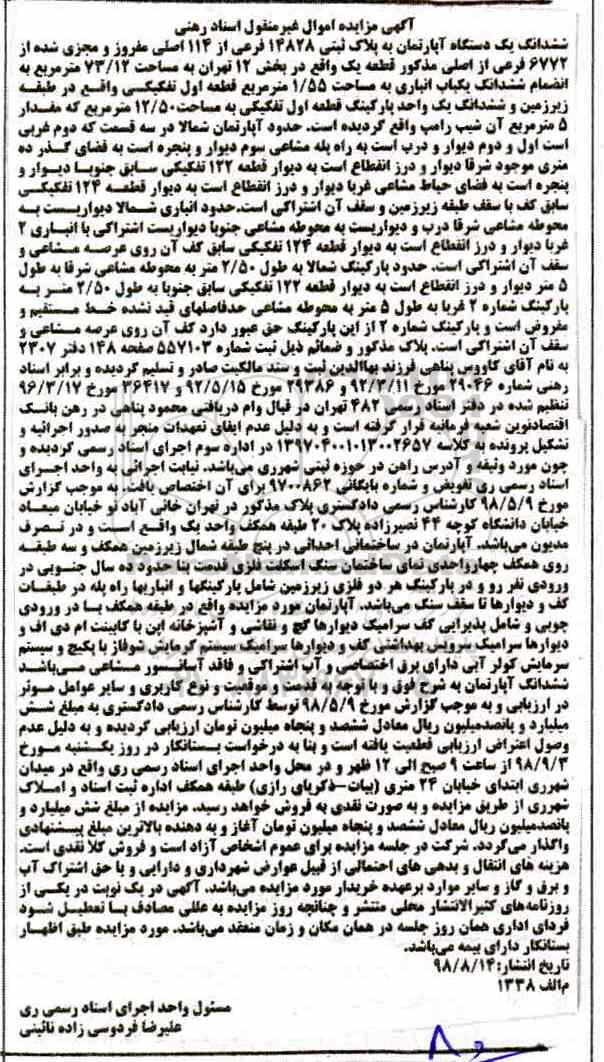 آگهی مزایده اموال غیرمنقول اسناد رهنی
ششدانگ یک دستگاه آپارتمان به پلاک ثبتی ۱۴۸۲۸ فرعی از ۱۱۴ اصلی مفروز و مجزی شده از
۶۷۷۲ فرعی از اصلی مذکور قطعه یک واقع در بخش ۱۲ تهران به مساحت ۷۳/۱۲ مترمربع به
انضمام ششدانگ یکباب انباری به مساحت ۱/۵۵ مترمربع قطعه اول تفکیکی واقع در طبقه
زیرزمین و ششدانگ یک واحد پارکینگ قطعه اول تفکیکی به مساحت ۱۲/۵۰ مترمربع که مقدار
۵ مترمربع آن شیب رامپ واقع گردیده است. حدود آپارتمان شمالا در سه قسمت که دوم غربی
است اول و دوم دیوار و درب است به راه پله مشاعی سوم دیوار و پنجره است به فضای گذر ده
متری موجود شرقا دیوار و درز انقطاع است به دیوار قطعه ۱۲۲ تفکیکی سابق جنوبا دیوار و
پنجره است به فضای حیاط مشاعی غربا دیوار و درز انقطاع است به دیوار قطعه ۱۲۴ تفکیکی
سابق کف با سقف طبقه زیرزمین و سقف آن اشتراکی است.حدود انباری شمالا دیواریست به
محوطه مشاعی شرقا درب و دیواریست به محوطه مشاعی جنوبا دیواریست اشتراکی با انباری ۲
غربا دیوار و درز انقطاع است به دیوار قطعه ۱۲۴ تفکیکی سابق کف آن روی عرصه مشاعی و
سقف آن اشتراکی است. حدود پارکینگ شمالا به طول ۲/۵۰ متر به محوطه مشاعی شرقا به طول
۵ متر دیوار و درز انقطاع است به دیوار قطعه ۱۲۲ تفکیکی سابق جنوبا به طول ۲/۵۰ متر به
پارکینگ شماره ۲ غربا به طول ۵ متر به محوطه مشاعی حدفاصلهای قید نشده خط مستقیم و
مفروض است و پارکینگ شماره ۲ از این پارکینگ حق عبور دارد کف آن روی عرصه مشاعی و
سقف آن اشتراکی است. پلاک مذکور و ضمائم ذیل ثبت شماره ۵۵۷۱۰۳ صفحه ۱۴۸ دفتر ۲۳۰۷
به نام آقای کاووس پناهی فرزند بهاالدین ثبت و سند مالکیت صادر و تسلیم گردیده و برابر اسناد
رهنی شماره ۲۹۰۴۶ مورخ ۹۲/۳/۱۱ و ۲۹۳۸۶ مورخ ۹۲/۵/۱۵ و ۳۶۴۱۷ مورخ ۹۶/۳/۱۷
تنظیم شده در دفتر اسناد رسمی ۴۸۲ تهران در قبال وام دریافتی محمود پناهی در رهن بانک
اقتصادنوین شعبه فرمانیه قرار گرفته است و به دلیل عدم ایفای تعهدات منجر به صدور اجرائیه و
تشکیل پرونده به کلاسه ۱۳۹۷۰۴۰۰۱۰۱۳۰۰۲۶۵۷ در اداره سوم اجرای اسناد رسمی گردیده و
چون مورد وثیقه و آدرس راهن در حوزه ثبتی شهرری می‌باشد. نیابت اجرائی به واحد اجرای
اسناد رسمی ری تفویض و شماره بایگانی ۹۷۰۰۸۶۲ برای آن اختصاص یافت. به موجب گزارش
مورخ ۹۸/۵/۹ کارشناس رسمی دادگستری پلاک مذکور در تهران خانی آباد نو خیابان میعاد
خیابان دانشگاه کوچه ۴۴ نصیرزاده پلاک ۲۰ طبقه همکف واحد یک واقع است و در تصرف
مدیون می‌باشد. آپارتمان در ساختمانی احداثی در پنج طبقه شمال زیرزمین همکف و سه طبقه
روی همکف چهارواحدی نمای ساختمان سنگ اسکلت فلزی قدمت بنا حدود ده سال جنوبی در
ورودی نفر رو و در پارکینگ هر دو فلزی زیرزمین شامل پارکینگها و انباریها راه پله در طبقات
کف و دیوارها تا سقف سنگ می‌باشد. آپارتمان مورد مزایده واقع در طبقه همکف با در ورودی
چوبی و شامل پذیرایی کف سرامیک دیوارها گچ و نقاشی و آشپزخانه اپن با کابینت ام دی اف و
دیوارها سرامیک سرویس بهداشتی کف و دیوارها سرامیک سیستم گرمایش شوفاژ با پکیج و سیستم
سرمایش کولر آبی دارای برق اختصاصی و آب اشتراکی و فاقد آسانسور مشاعی می‌باشد
ششدانگ آپارتمان به شرح فوق و با توجه به قدمت و موقعیت و نوع کاربری و سایر عوامل موثر
در ارزیابی و به موجب گزارش مورخ ۹۸/۵/۹ توسط کارشناس رسمی دادگستری به مبلغ شش
میلیارد و پانصدمیلیون ریال معادل ششصد و پنجاه میلیون تومان ارزیابی گردیده و به دلیل عدم
وصول اعتراض ارزیابی قطعیت یافته است و بنا به درخواست بستانکار در روز یکشنبه مورخ
۹۸/۹/۳ از ساعت ۹ صبح الی ۱۲ ظهر و در محل واحد اجرای اسناد رسمی ری واقع در میدان
شهرری ابتدای خیابان ۲۴ متری (بیات-ذکریای رازی) طبقه همکف اداره ثبت اسناد و املاک
شهرری از طریق مزایده و به صورت نقدی به فروش خواهد رسید. مزایده از مبلغ شش میلیارد و
پانصدمیلیون ریال معادل ششصد و پنجاه میلیون تومان آغاز و به دهنده بالاترین مبلغ پیشنهادی
واگذار می‌گردد. شرکت در جلسه مزایده برای عموم اشخاص آزاد است و فروش کلا نقدی است.
هزینه های انتقال و بدهی های احتمالی از قبیل عوارض شهرداری و دارایی و با حق اشتراک آب
و برق و گاز و سایر موارد برعهده خریدار مورد مزایده می‌باشد. آگهی در یک نوبت در یکی از
روزنامه‌های کثیرالانتشار محلی منتشر و چنانچه روز مزایده به عللی مصادف با تعطیل شود
فردای اداری همان روز جلسه در همان مکان و زمان منعقد می‌باشد. مورد مزایده طبق اظهار
بستانکار دارای بیمه می‌باشد.
تاریخ انتشار: ۹۸/۸/۱۴
م‌الف ۱۳۳۸
مسئول واحد اجرای اسناد رسمی ری
علیرضا فردوسی زاده نائینی